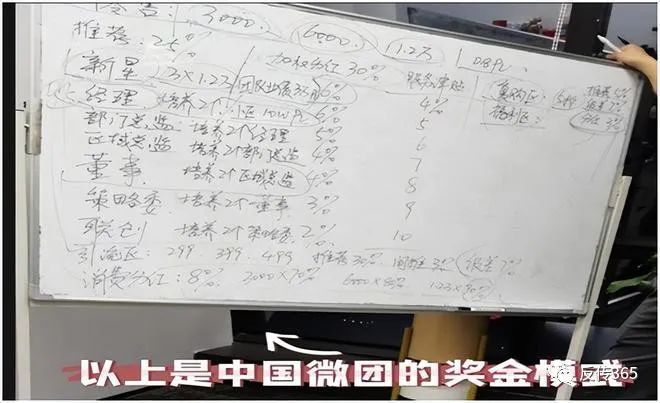 3000. 6000. 1.2万 DBPL
推荐: 25% 加权分红 30% 服务津贴
新星 1.2万 团队业绩 6% 复购区: 推荐
经理 培养2个 小区10W PL 6% 4% 福利区: 分红3%
部门总监 培养2个经理 5% 5
区域总监 培养2个部门总监 4% 6
董事 培养2个区域总监 4% 7
策略委 培养2个董事 3% 8
联创 培养2个策略委 2% 9
10
引流区: 299. 399. 499 推荐30% 间推3% 级差7%
消费分红: 8% 3000×70% 6000×80% 1.2万×90%
以上是中国微团的奖金模式
反传365